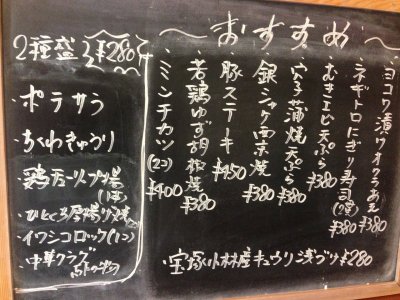 ～おすすめ～
ヨコワ漬クオクラあえ ¥380
ネギトロにぎり寿司(2貫) ¥380
むきエビ天ぷら ¥380
穴子蒲焼天ぷら ¥380
銀シャケ西京焼 ¥380
豚ステーキ ¥450
若鶏ゆず胡椒焼 ¥380
ミンチカツ(2コ) ¥400
・宝塚小林産キュウリ浅づけ ¥280
2種盛 ¥280
・ポテサラ
・ちくわきゅうり
・鶏チューリップ揚(1本)
・ひとくち厚揚げ焼
・イワシコロッケ(1コ)
・中華クラゲ